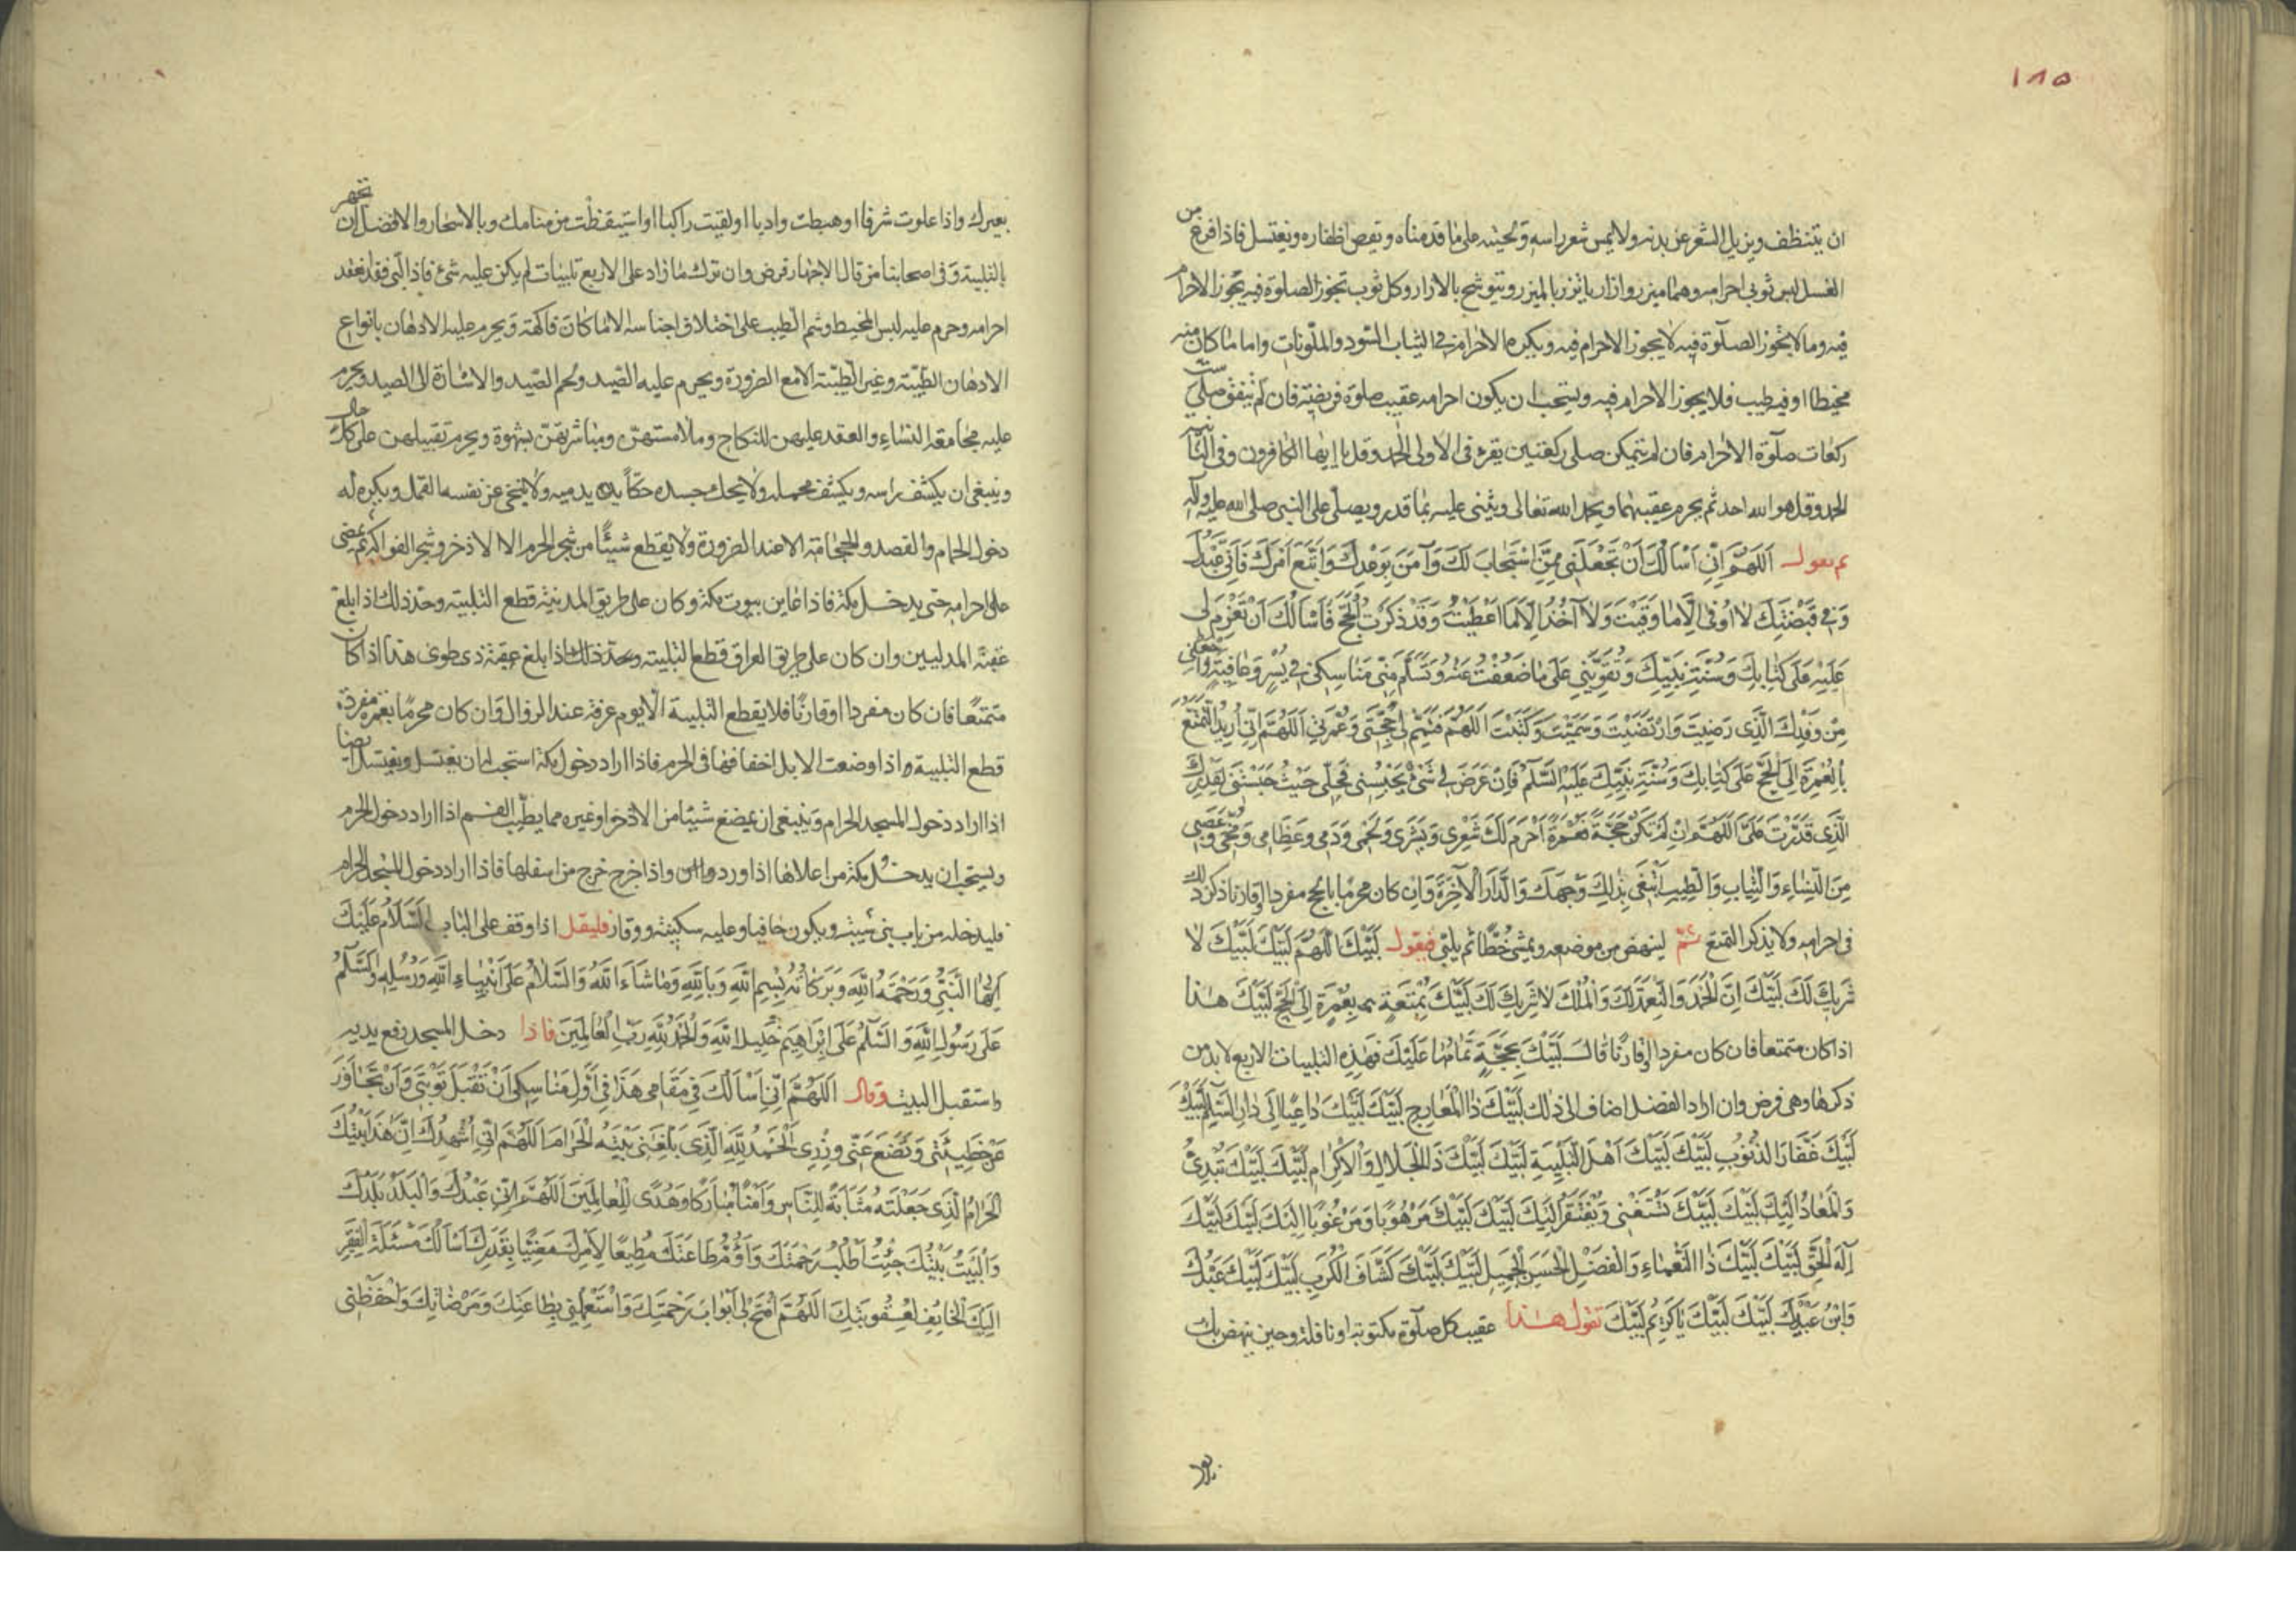 ١٨٥
ان يتنظف ويزيل الشعر عن بدنه ولا يمس شعر راسه ولحيته على ما قدمناه ويقص اظفاره ويغتسل فاذا فرغ من
الغسل لبس ثوبي احرامه وهما ميزر وازار ياتزر بالميزر ويتوشح بالازار وكل ثوب تجوز الصلوة فيه يجوز الاحرام
فيه وما لا يجوز الصلوة فيه لا يجوز الاحرام فيه ويكره الاحرام في الثياب السود والملونات واما ما كان منه
مخيطا او فيه طيب فلا يجوز الاحرام فيه ويستحب ان يكون احرامه عقيب صلوة فريضة فان لم يتفق صلى ست
ركعات صلوة الاحرام فان لم يتمكن صلى ركعتين يقرء في الاولى الحمد وقل يا ايها الكافرون وفي الثانية
الحمد وقل هو الله احد ثم يحرم عقيبهما ويحمد الله تعالى ويثنى عليه بما قدر ويصلى على النبي صلى الله عليه وآله
ثم يقول اَللّهُمَّ اِنّي اَسْاَلُكَ اَنْ تَجْعَلَنى مِمَّنِ اسْتَجابَ لَكَ وَآمَنَ بِوَعْدِكَ وَاتَّبَعَ اَمْرَكَ فَاِنّى عَبْدُكَ
وَفي قَبْضَتِكَ لا اُوقى اِلّا ما وَقَيْتَ وَلا آخُذُ اِلّا ما اَعْطَيْتَ وَقَدْ ذَكَرْتَ الْحَجَّ فَاَسْاَلُكَ اَنْ تَعْزِمَ لى
عَلَيْهِ عَلى كِتابِكَ وَسُنَّةِ نَبِيِّكَ وَتُقَوِّيَنى عَلى ما ضَعُفْتُ عَنْهُ وَتَسَلَّمَ مِنّى مَناسِكى في يُسْرٍ وَعافِيَةٍ وَاجْعَلْنى
مِنْ وَفْدِكَ الَّذى رَضِيتَ وَارْتَضَيْتَ وَسَمَّيْتَ وَكَتَبْتَ اَللّهُمَّ فَتَمِّمْ لى حَجَّتى وَعُمْرَتى اَللّهُمَّ اِنّى اُريدُ التَّمَتُّعَ
بِالْعُمْرَةِ اِلَى الْحَجِّ عَلى كِتابِكَ وَسُنَّةِ نَبِيِّكَ عَلَيْهِ السَّلَمُ فَاِنْ عَرَضَ لى شَىْءٌ يَحْبِسُنى فَحُلَّنى حَيْثُ حَبَسْتَنى لِقَدَرِكَ
الَّذى قَدَّرْتَ عَلَىَّ اَللّهُمَّ اِنْ لَمْ تَكُنْ حَجَّةً فَعُمْرَةً اَحْرَمَ لَكَ شَعْرى وَبَشَرى وَلَحْمى وَدَمى وَعِظامى وَمُخّى وَعَصَبى
مِنَ النِّساءِ وَالثِّيابِ وَالطِّيبِ اَبْتَغى بِذلِكَ وَجْهَكَ وَالدّارَ الْآخِرَةَ وَاِن كان محرما بالحج مفردا او قارنا ذكر ذلك
في احرامه ولا يذكر التمتع ثمّ لينهض من موضعه ويمشى خُطًا ثم يلبّى فيقول لَبَّيْكَ اللّهُمَّ لَبَّيْكَ لَبَّيْكَ لا
شَريكَ لَكَ لَبَّيْكَ اِنَّ الْحَمْدَ وَالنِّعْمَةَ لَكَ وَالْمُلْكَ لا شَريكَ لَكَ لَبَّيْكَ بِمُتْعَةٍ بِعُمْرَةٍ اِلَى الْحَجِّ لَبَّيْكَ هذا
اذا كان متمتعا فان كان مفردا او قارنًا قال لَبَّيْكَ بِحَجَّةٍ تَمامُها عَلَيْكَ فهذه التلبيات الاربع لا بد من
ذكرها وهى فرض وان اراد الفضل اضاف الى ذلك لَبَّيْكَ ذَا الْمَعارِجِ لَبَّيْكَ لَبَّيْكَ داعِيًا اِلى دارِ السَّلامِ لَبَّيْكَ
لَبَّيْكَ غَفّارَ الذُّنُوبِ لَبَّيْكَ لَبَّيْكَ اَهْلَ التَّلْبِيَةِ لَبَّيْكَ لَبَّيْكَ ذَا الْجَلالِ وَالْاِكْرامِ لَبَّيْكَ لَبَّيْكَ تُبْدِئُ
وَالْمَعادُ اِلَيْكَ لَبَّيْكَ لَبَّيْكَ تَسْتَغْنى وَيُفْتَقَرُ اِلَيْكَ لَبَّيْكَ لَبَّيْكَ مَرْهُوبًا وَمَرْغُوبًا اِلَيْكَ لَبَّيْكَ لَبَّيْكَ
اِلهَ الْحَقِّ لَبَّيْكَ لَبَّيْكَ ذَا النَّعْماءِ وَالْفَضْلِ الْحَسَنِ الْجَميلِ لَبَّيْكَ لَبَّيْكَ كَشّافَ الْكُرَبِ لَبَّيْكَ لَبَّيْكَ عَبْدُكَ
وَابْنُ عَبْدَيْكَ لَبَّيْكَ لَبَّيْكَ يا كَريمُ لَبَّيْكَ تقول هذا عقيب كل صلوة مكتوبة او نافلة وحين ينهض بك
بعيرك واذا علوت شرفا او هبطت واديا او لقيت راكبا او استيقظت من منامك وبالاسحار والافضل ان تجهر
بالتلبية وفى اصحابنا من قال الاجهار فرض وان ترك ما زاد على الاربع تلبيات لم يكن عليه شئ فاذا لبّى فقد انعقد
احرامه وحرم عليه لبس المخيط وشم الطيب على اختلاف اجناسه الا ما كان فاكهة ويحرم عليه الادهان بانواع
الادهان الطيّبة وغير الطيّبة الا مع الضرورة ويحرم عليه الصّيد ولحم الصّيد والاشارة الى الصيد ويحرم
عليه مجامعة النساء والعقد عليهن للنكاح وملامستهنّ ومباشرتهنّ بشهوة ويحرم تقبيلهن على كل حال
وينبغى ان يكشف راسه ويكشف محمله ولا يحك جسده حكّاً يدميه ولا ينحّى عن نفسه القمل ويكره له
دخول الحمام والفصد والحجامة الا عند الضرورة ولا يقطع شيئًا من شجر الحرم الا الاذخر وشجر الفواكه ثم يمضى
على احرامه حتى يدخل مكة فاذا عاين بيوت مكة وكان على طريق المدينة قطع التلبية وحدّ ذلك اذا بلغ
عقبة المدنيين وان كان على طريق العراق قطع التلبية وحدّ ذلك اذا بلغ عقبة ذى طوى هذا اذا كان
متمتعًا فان كان مفردا او قارنًا فلا يقطع التلبية الّا يوم عرفة عند الزوال وان كان محرمًا بعمرة مفردة
قطع التلبية اذا وضعت الابل اخفافها فى الحرم فاذا اراد دخول مكة استحب له ان يغتسل ويغتسل ايضا
اذا اراد دخول المسجد الحرام وينبغى ان يمضغ شيئا من الاذخر او غيره مما يطيّب الفم اذا اراد دخول الحرم
ويستحب ان يدخل مكة من اعلاها اذا ورد واذا خرج خرج من اسفلها فاذا اراد دخول المسجد الحرام
فليدخله من باب بنى شيبة ويكون حافيا وعليه سكينة ووقار فليقل اذا وقف على الباب اَلسَّلامُ عَلَيْكَ
اَيُّهَا النَّبِىُّ وَرَحْمَةُ اللهِ وَبَرَكاتُهُ بِسْمِ اللهِ وَبِاللهِ وَما شاءَ اللهُ وَالسَّلامُ عَلى اَنْبِياءِ اللهِ وَرُسُلِهِ وَالسَّلَمُ
عَلى رَسُولِ اللهِ وَالسَّلَمُ عَلى اِبْراهيمَ خَليلِ اللهِ وَالْحَمْدُ لِلهِ رَبِّ الْعالَمينَ فاذا دخل المسجد رفع يديه
واستقبل البيت وقال اَللّهُمَّ اِنّى اَسْاَلُكَ فى مَقامى هذا فى اَوَّلِ مَناسِكى اَنْ تَقْبَلَ تَوْبَتى وَاَنْ تَجاوَزَ
عَنْ خَطيئَتى وَتَضَعَ عَنّى وِزْرى اَلْحَمْدُ لِلهِ الَّذى بَلَّغَنى بَيْتَهُ الْحَرامَ اَللّهُمَّ اِنّى اُشْهِدُكَ اَنَّ هذا بَيْتُكَ
الْحَرامُ الَّذى جَعَلْتَهُ مَثابَةً لِلنّاسِ وَاَمْنًا مُبارَكًا وَهُدًى لِلْعالَمينَ اَللّهُمَّ اِنّى عَبْدُكَ وَالْبَلَدُ بَلَدُكَ
وَالْبَيْتُ بَيْتُكَ جِئْتُ اَطْلُبُ رَحْمَتَكَ وَاَؤُمُّ طاعَتَكَ مُطيعًا لِاَمْرِكَ بِقَدَرِكَ اَسْاَلُكَ مَسْئَلَةَ الْفَقيرِ
اِلَيْكَ الْخائِفِ لِعُقُوبَتِكَ اَللّهُمَّ افْتَحْ لى اَبْوابَ رَحْمَتِكَ وَاسْتَعْمِلْنى بِطاعَتِكَ وَمَرْضاتِكَ وَاحْفَظْنى